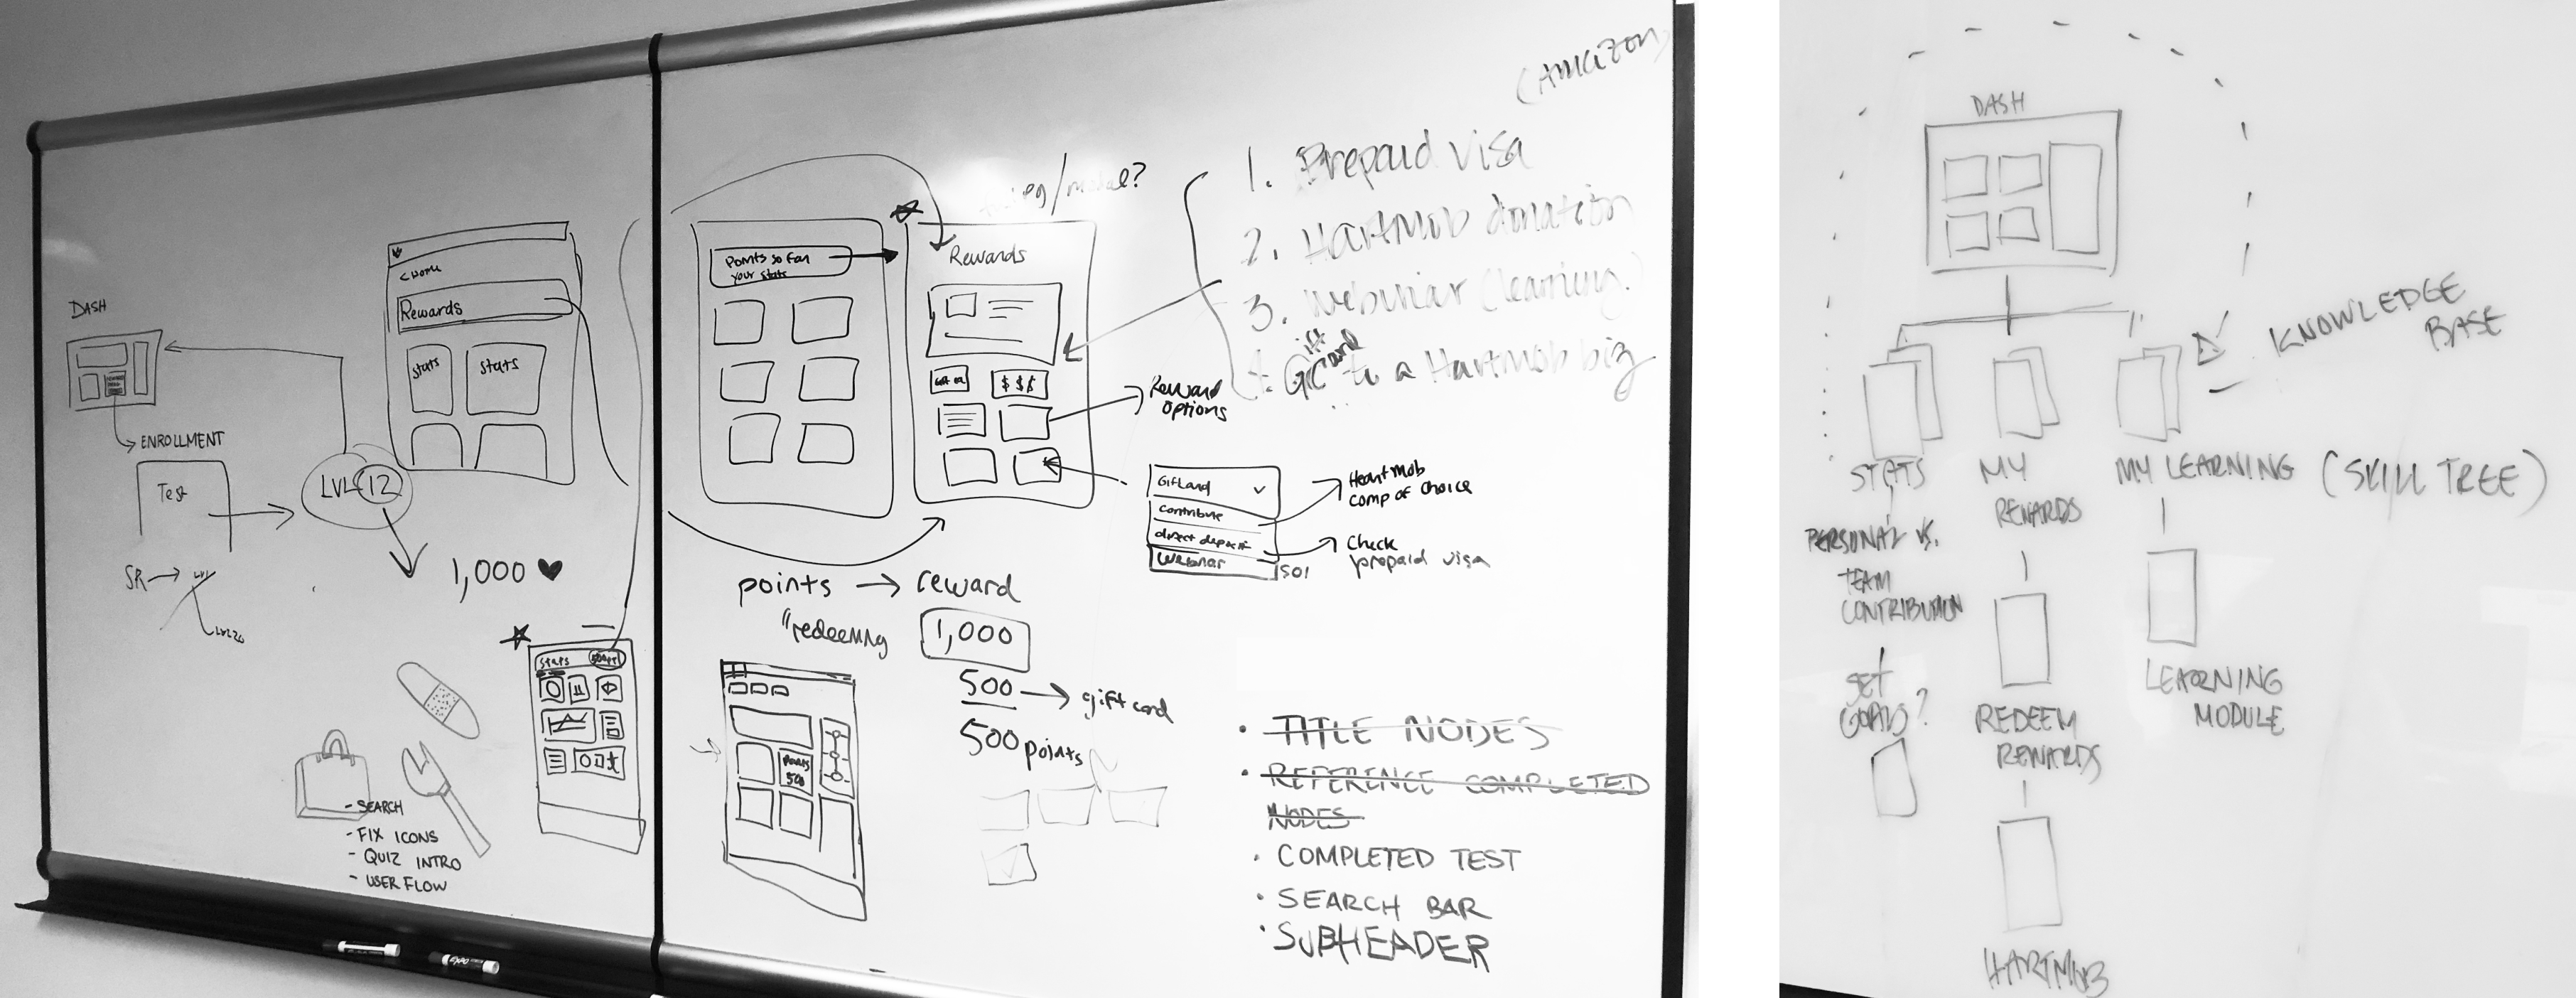 DASH
ENROLLMENT
Test
SR
LVL 12
1,000
< HOME
Rewards
stats
stats
stats
- SEARCH
- FIX ICONS
- QUIZ INTRO
- USER FLOW
EXPO
Points so far
your stats
/modal?
Rewards
$$$
Reward
options
(Amazon)
1. Prepaid Visa
2. HartMob donation
3. Webinar (learning)
Gift card to a HartMob biz
Giftcard
contribute
direct deposit
webinar
HeartMob
comp of choice
Check
prepaid visa
points → reward
"redeeming
1,000
500 → gift card
500 points
points
500
• TITLE NODES
• REFERENCE COMPLETED
NODES
• COMPLETED TEST
• SEARCH BAR
• SUBHEADER
DASH
KNOWLEDGE
BASE
STATS
MY
REWARDS
MY LEARNING (SKILL TREE)
PERSONAL VS.
TEAM
CONTRIBUTION
SET
GOALS?
REDEEM
REWARDS
LEARNING
MODULE
HARTMOB